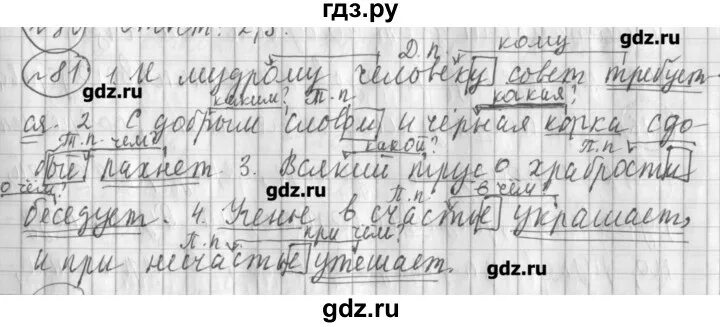 гдз.ру
Д.п. кому
№81 1. И мудрому человеку совет требует-
каким? Т.п. какая?
ся. 2. С добрым словом и чёрная корка сдо-
Т.п. чем? какой? П.п.
бой пахнет. 3. Всякий трус о храбрости
о чём? П.п. в чём?
беседует. 4. Ученье в счастье украшает,
П.п. при чём?
и при несчастье утешает.
gdz.ru
gdz.ru
gdz.ru
gdz.ru
gdz.ru
gdz.ru
gdz.ru